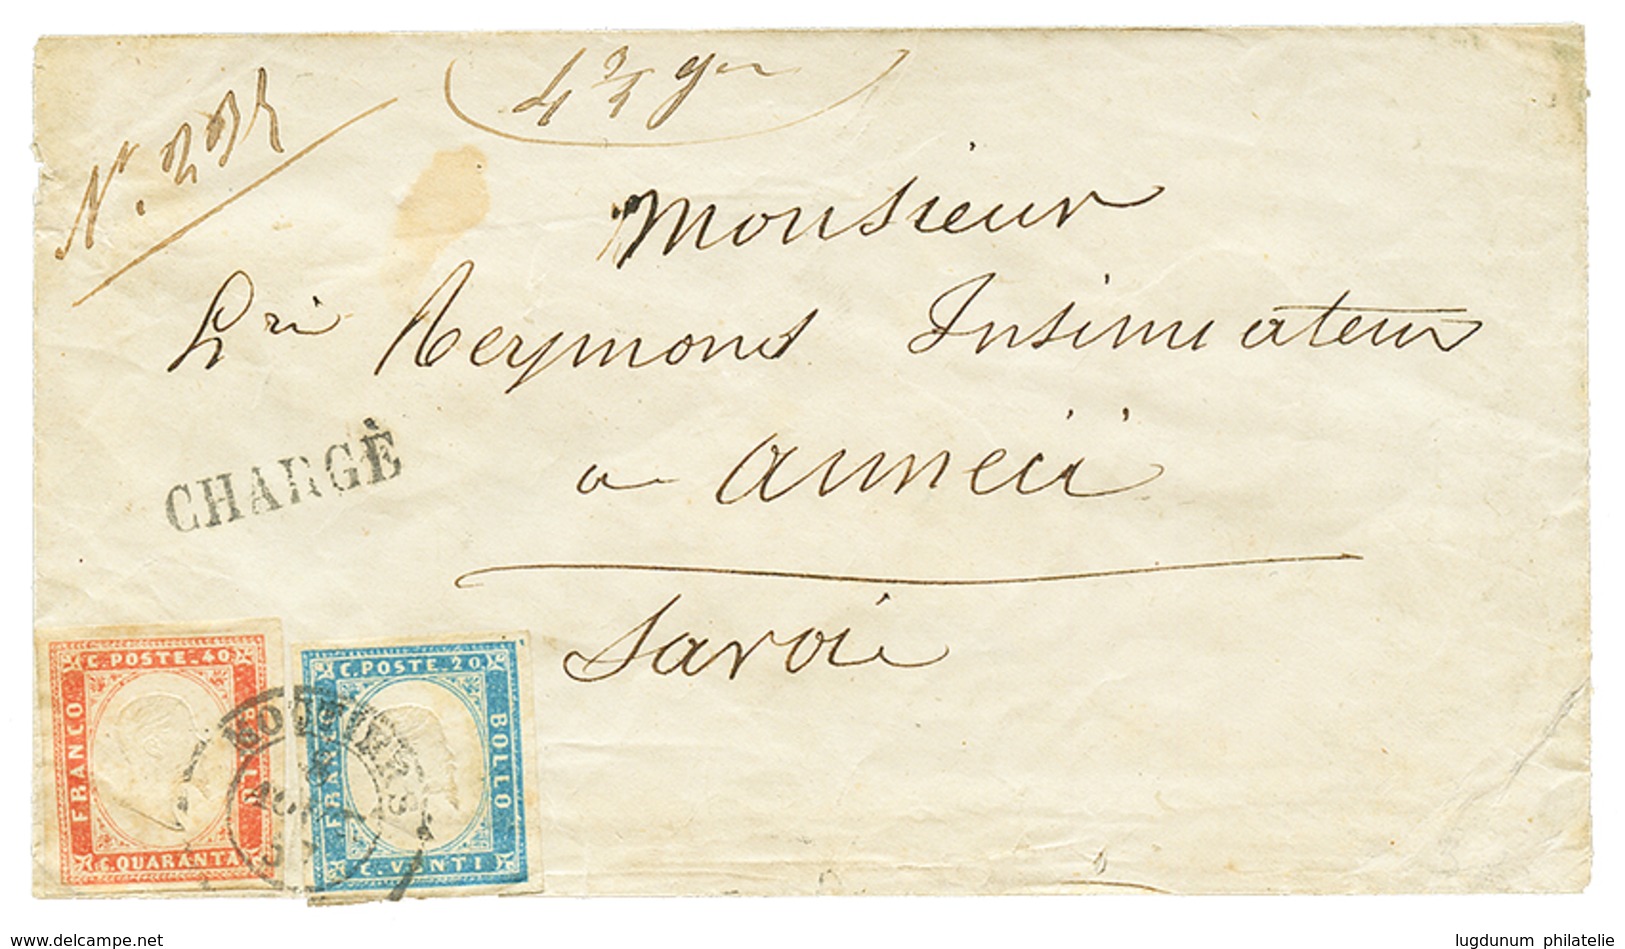 4 3/4 gr
Monsieur
Insinuateur
a annecii
Savoie
CHARGÈ
C. POSTE. 40
FRANCO
C. QUARANTA
C. POSTE. 20.
FRANCO
BOLLO
C. VENTI
MOUTIERS
AOUT
www.delcampe.net
lugdunum philatelie